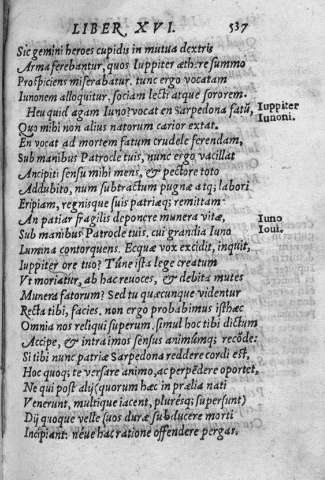 LIBER XVI. 537
Sic gemini heroes cupidis in mutua dextris
Arma ferebantur, quos Iuppiter æthere summo
Prospiciens miserabatur. tunc ergo vocatam
Iunonem alloquitur, sociam lecti atque sororem.
Heu quid agam Iuno? vocat en Sarpedona fatũ, Iuppiter
Quo mihi non alius natorum carior extat. Iunoni.
En vocat ad mortem fatum crudele ferendam,
Sub manibus Patrocle tuis, nunc ergo vacillat
Ancipiti sensu mihi mens, & pectore toto
Addubito, num subtractum pugnæ atq; labori
Eripiam, regnisque suis patriæq; remittam:
An patiar fragilis deponere munera vitæ, Iuno
Sub manibus Patrocle tuis. cui grandia Iuno Ioui.
Lumina contorquens. Ecquæ vox excidit, inquit,
Iuppiter ore tuo? Tũne ista lege creatum
Vt moriatur, ab hac reuoces, & debita mutes
Munera fatorum? Sed tu quæcunque videntur
Recta tibi, facies, non ergo probabimus isthæc
Omnia nos reliqui superum, simul hoc tibi dictum
Accipe, & intra imos sensus animũmq; recõde:
Si tibi nunc patriæ Sarpedona reddere cordi est,
Hoc quoq; te versare animo, ac perpẽdere oportet,
Ne qui post alij (quorum hæc in prælia nati
Venerunt, multique iacent, plurésq; supersunt)
Dij quoque velle suos duræ subducere morti
Incipiant: néue hac ratione offendere pergas.